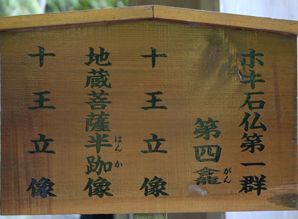 ホキ石仏第一群
第四龕
がん
十王立像
地蔵菩薩半跏像
はんか
十王立像